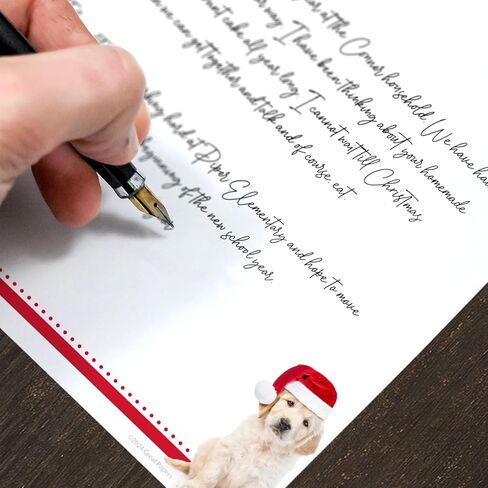 year at the Comer household. We have ha
say I have been thinking about your homemade
cake all year long. I cannot wait till Christmas
we can get together and talk and of course eat
hard at Piper Elementary and hope to move
of the new school year.
©2024 Great Papers